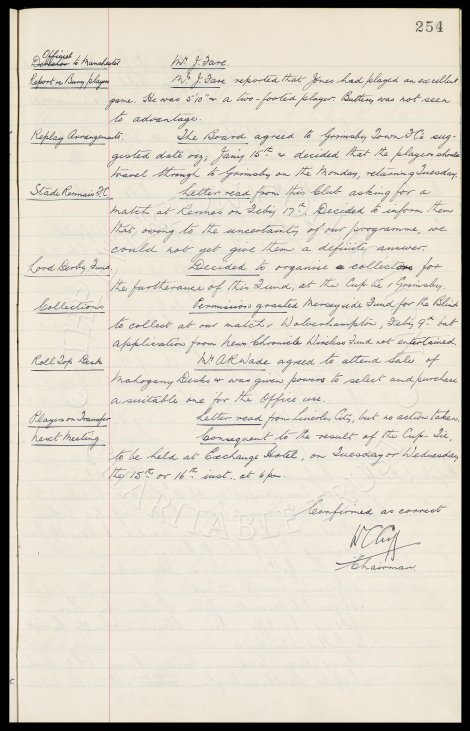 254
Official
Director to Manchester Mr J. Fare.
Report re Bury players Mr J. Fare reported that Jones had played an excellent
game. He was 5'10" & a two-footed player. Buttery was not seen
to advantage.
Replay Arrangements. The Board agreed to Grimsby Town FC's sug-
gested date viz; Jan'y 15th & decided that the players should
travel through to Grimsby on the Monday, returning Tuesday.
Stade Rennais F.C. Letter read from this Club asking for a
match at Rennes on Feb'y 17th. Decided to inform them
that, owing to the uncertainty of our programme, we
could not yet give them a definite answer.
Lord Derby Fund. Decided to organise a collection for
the furtherance of this Fund, at the Cup tie v Grimsby.
Collections Permission granted Merseyside Fund for the Blind
to collect at our match v Wolverhampton, Feb'y 9th but
application from News Chronicle Wireless Fund not entertained.
Roll Top Desk Mr A R Wade agreed to attend Sales of
Mahogany Desks & was given powers to select and purchase
a suitable one for the Office use.
Players on Transfer Letter read from Lincoln City, but no action taken.
Next Meeting Consequent to the result of the Cup-Tie,
to be held at Exchange Hotel, on Tuesday or Wednesday
the 15th or 16th inst., at 6 pm.
Confirmed as correct
W C Cuff
Chairman
CHARITABLE TRUST